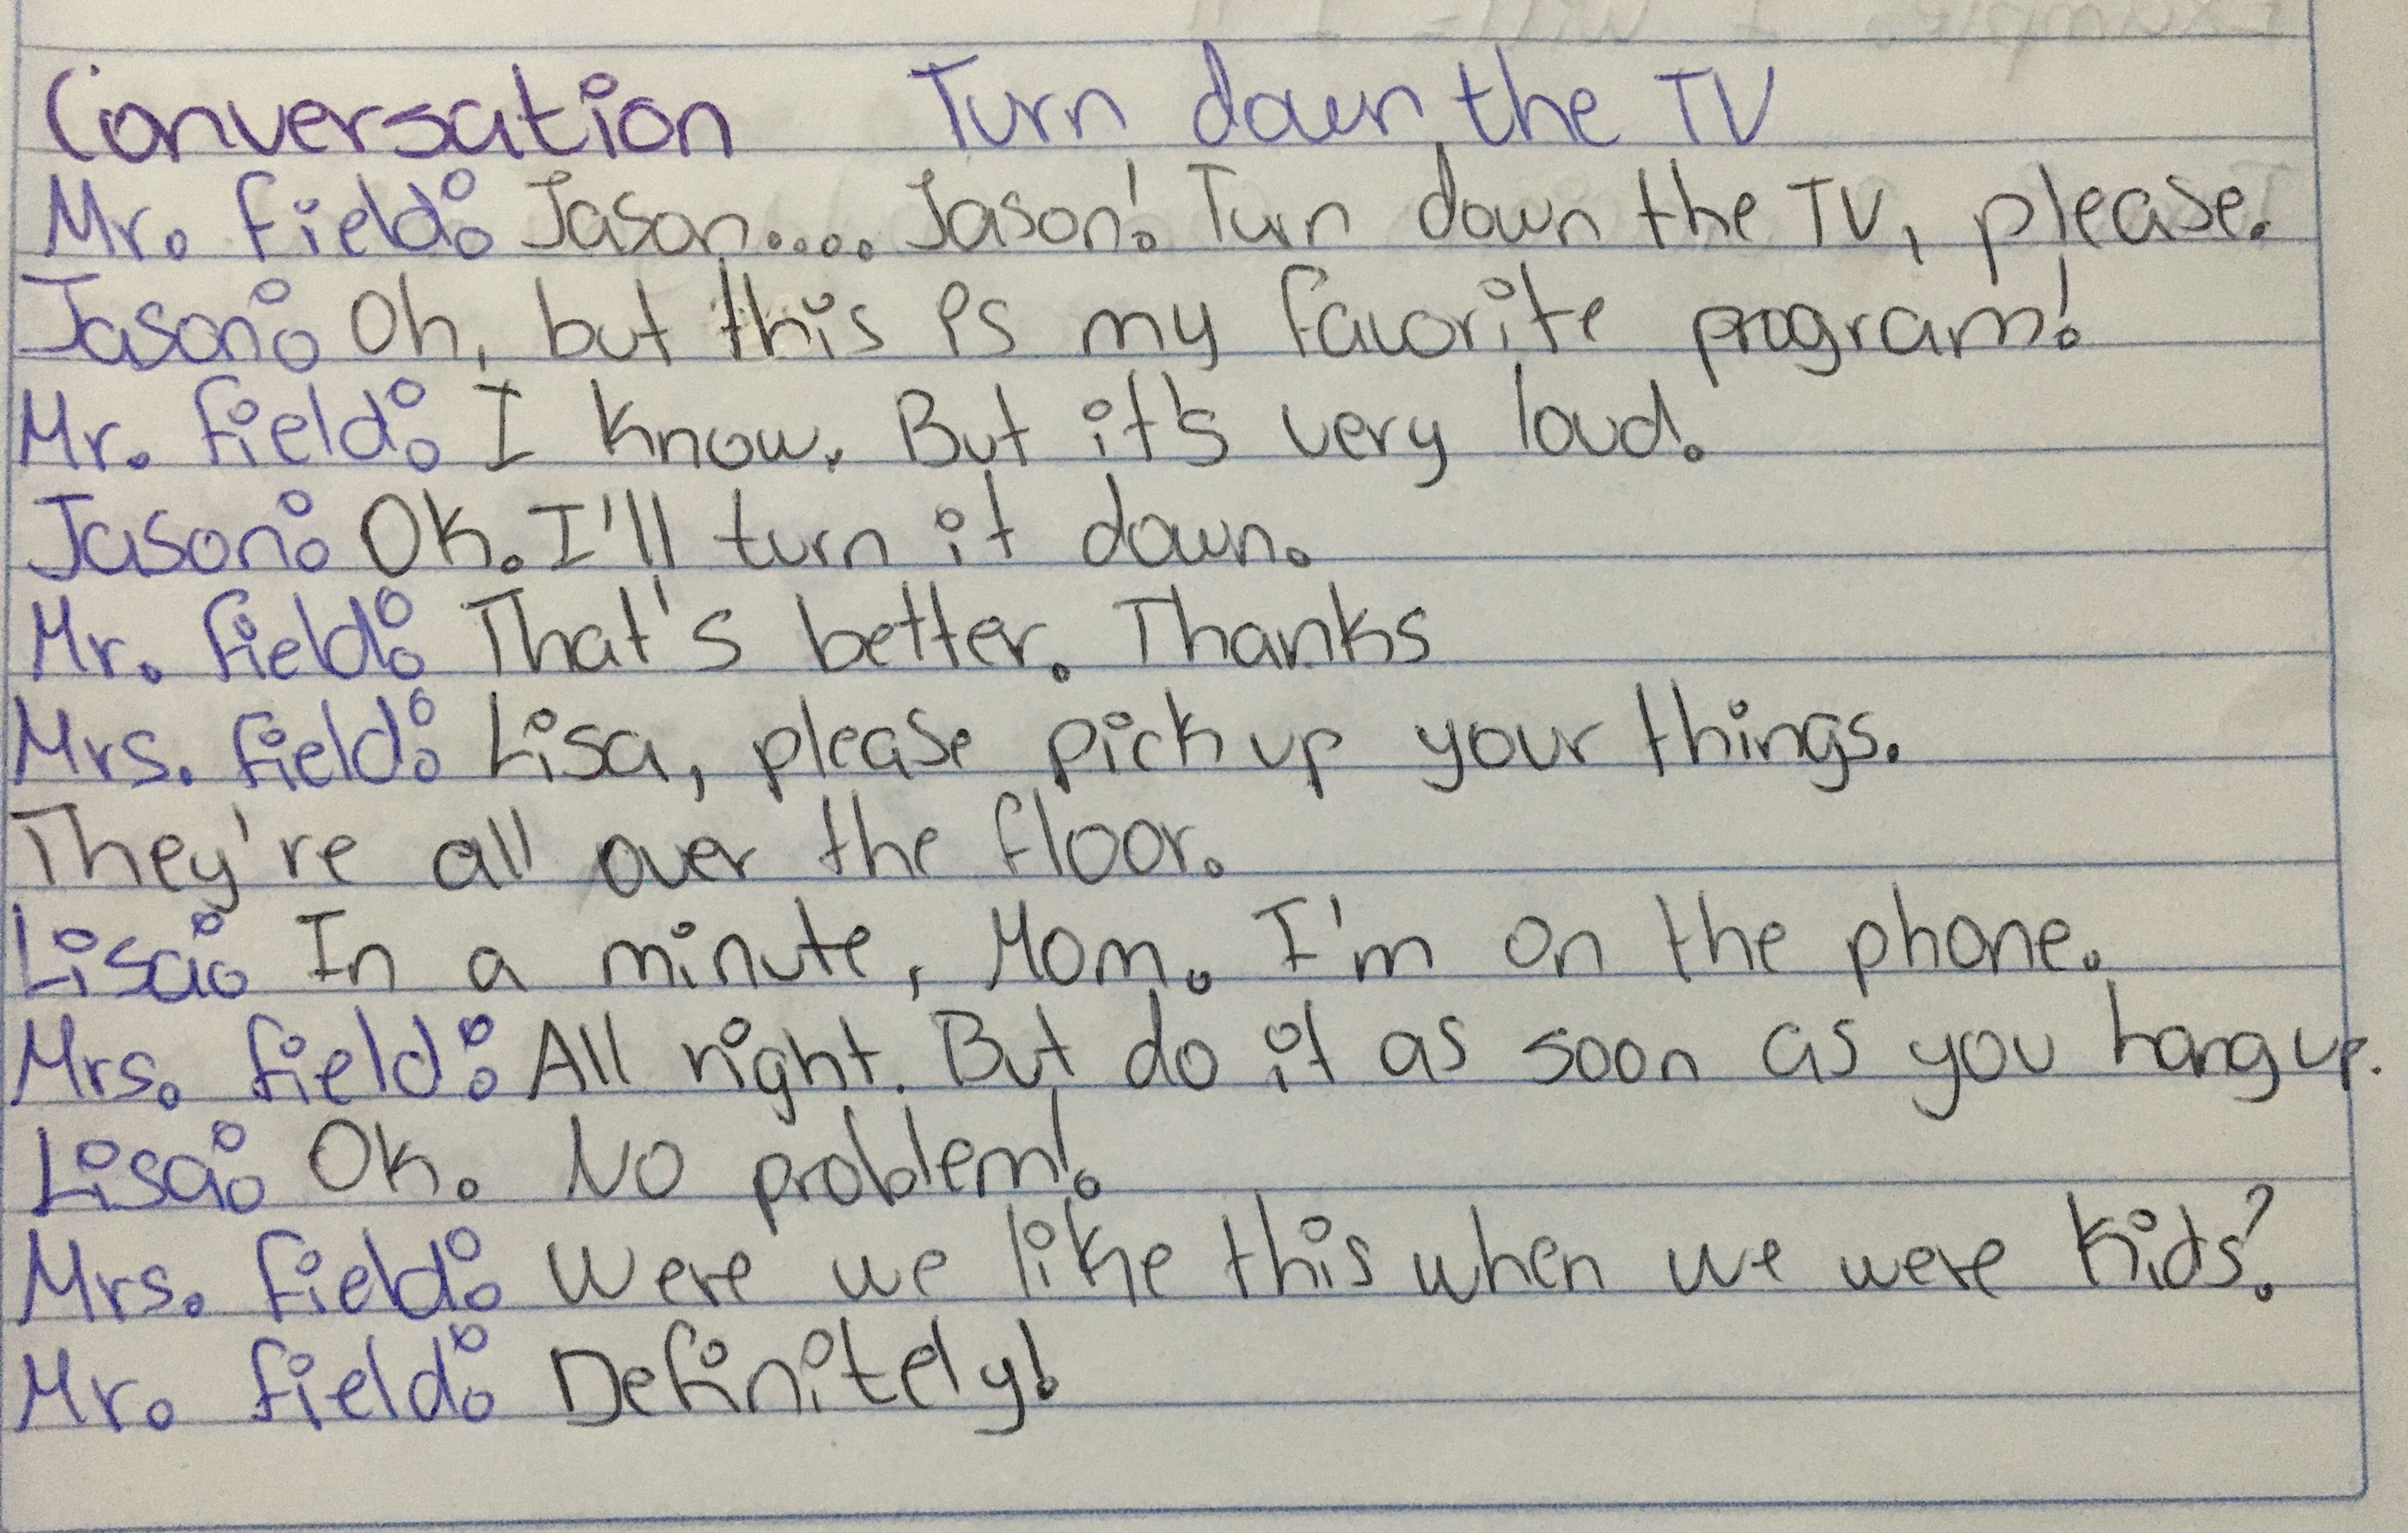 Conversation Turn down the TV
Mr. field: Jason.... Jason! Turn down the TV, please.
Jason: Oh, but this is my favorite program!
Mr. field: I know. But it's very loud.
Jason: OK. I'll turn it down.
Mr. field: That's better. Thanks
Mrs. field: Lisa, please pick up your things.
They're all over the floor.
Lisa: In a minute, Mom. I'm on the phone.
Mrs. field: All right. But do it as soon as you hang up.
Lisa: OK. No problem!
Mrs. field: Were we like this when we were kids?
Mr. field: Definitely!